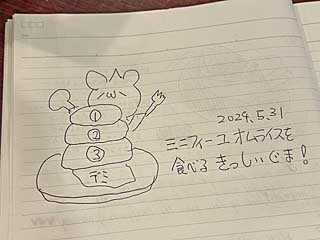 ①
②
③
デミ
2024.5.31
ミニフィーユ オムライスを
食べる きっしぃぐま!